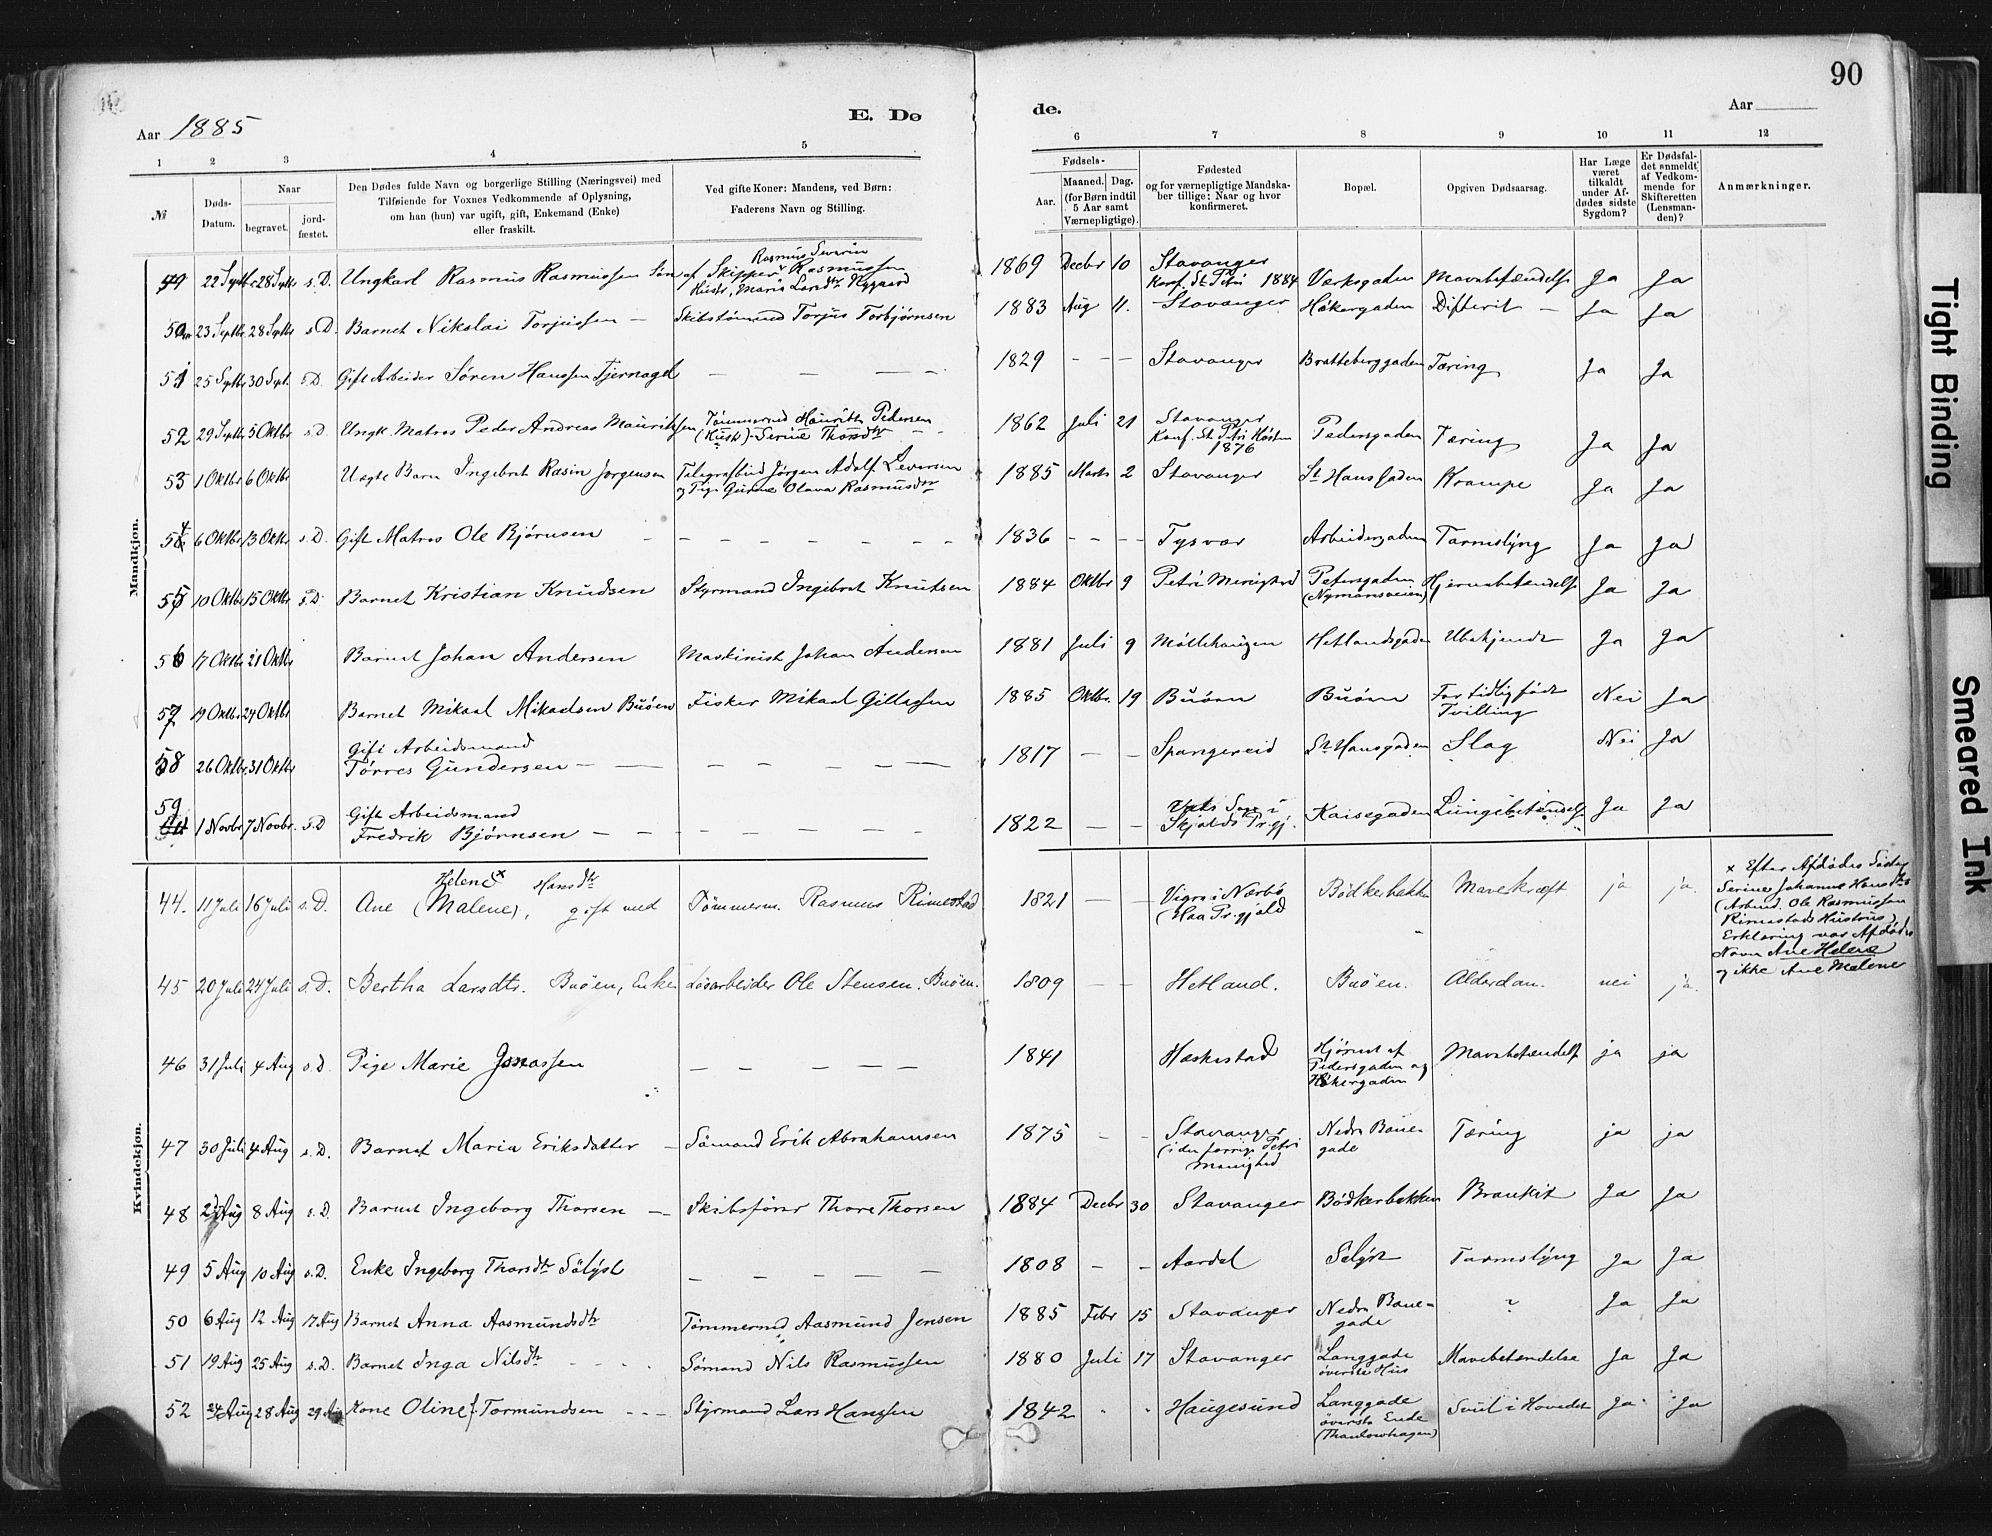 90
Aar 1885
E. Dø
de.
Aar
1 2 3 4 5
6 7 8 9 10 11 12
№
Døds-
Datum.
Naar
begravet.
jord-
fæstet.
Den Dødes fulde Navn og borgerlige Stilling (Næringsvei) med
Tilføiende for Voxnes Vedkommende af Oplysning,
om han (hun) var ugift, gift, Enkemand (Enke)
eller fraskilt.
Ved gifte Koner: Mandens, ved Børn:
Faderens Navn og Stilling.
Fødsels-
Aar.
Maaned. Dag.
(for Børn indtil
5 Aar samt
Værnepligtige).
Fødested
og for værnepligtige Mandska-
ber tillige: Naar og hvor
konfirmeret.
Bopæl.
Opgiven Dødsaarsag.
Har Læge
været
tilkaldt
under Af-
dødes sidste
Sygdom?
Er Dødsfal-
det anmeldt
af Vedkom-
mende for
Skifteretten
(Lensman-
den)?
Anmærkninger.
Mandkjøn.
Rasmus Severin
49 22 Septbr 28 Septbr s.D. Ungkarl Rasmus Rasmussen Søn af Skipper Rasmussen 1869 Decbr 10 Stavanger Verksgaden Mavebetændelse Ja Ja
Hustr. Maria Larsdtr Nygaard Konf. St. Petri 1884
50 23 Septbr 28 Septbr s.D. Barnet Nikolai Torjussen — Skibstømmrd Torjus Torbjørnsen 1883 Aug 11. Stavanger Høkergaden Difterit — Ja Ja
51 25 Septbr 30 Sept. s.D. Gift Arbeider Søren Hanssen Tjernagel — — — — 1829 - - - Stavanger Bratteberggaden Tæring Ja Ja
52 29 Septbr 5 Oktbr s.D. Ungk. Matros Peder Andreas Mauritzsen Tømmermd Mauritz Pedersen 1862 Juli 21 Stavanger Pedersgaden Tæring Ja Ja
(Hustr) Serine Thorsdtr Konf. St. Petri Høsten
1876
53 1 Oktbr 6 Oktbr Uægte Barn Ingebret Rasin Jørgensen Telegrafbud Jørgen Adolf Seversen 1885 Marts 2 Stavanger St Hansgaden Krampe Ja Ja
og Pige Gurine Olava Rasmusdtr
54 6 Oktbr 13 Oktbr s.D. Gift Matros Ole Bjørnsen — — — — 1836 - - - - Tysvær Arbeidergaden Tarmslyng Ja Ja
55 10 Oktbr 15 Oktbr s.D. Barnet Kristian Knudsen Styrmand Ingebret Knutsen 1884 Oktbr 9 Petri Menighed Petersgaden Hjernebetændelse Ja Ja
(Nymansveien)
56 17 Oktbr 21 Oktbr Barnet Johan Andersen Maskinist Johan Andersen 1881 Juli 9 Møllehaugen Hetlandsgaden Ubekjendt Ja Ja
57 19 Oktbr 24 Oktbr Barnet Mikael Mikaelsen Buøen Fisker Mikael Gitlessen 1885 Oktbr. 19 Buøen Buøen For tidlig født Nei Ja
Tvilling
58 26 Oktbr 31 Oktbr Gift Arbeidsmand
Tørres Gundersen — — — — — 1817 — — Spangereid St. Hansgaden Slag Nei Ja
59 1 Novbr 7 Novbr. s.D Gift Arbeidsmand
Fredrik Bjørnsen — — — — — 1822 — — Vats Sogn i Kaisegaden Lungebetændelse Ja Ja
Skjolds Pr.gj.
Kvindekjøn.
Helene x Hansdtr
44. 11 Juli 16 Juli s.D. Ane (Malene), gift med Tømmerm. Rasmus Rimestad 1821 — — Vigre i Nærbø Bødkerbakken Mavekræft ja ja.
(Haa Pr.gjeld
x Efter Afdødes Søster
Serine Johanne Hansdtrs
(Arbmd. Ole Rasmussen
Rimestads Hustrus)
Erklæring var Afdødes
Navn Ane Helene
og ikke Ane Malene
45 20 Juli 24 Juli s.D. Bertha Larsdtr. Buøen, Enke Løsarbeider Ole Stensen. Buøen. 1809 — — Hetland. Buøen. Alderdom. nei ja.
46 31 Juli 4 Aug s.D. Pige Marie Jonassen — — — — — 1841 Heskestad Hjørnet af Mavebetændelse ja ja
Pedersgaden og
Høkergaden
47 30 Juli 4 Aug s.D. Barnet Maria Eriksdatter — Sømand Erik Abrahamsen 1875 - - Stavanger Nedre Bane- Tæring ja ja
(i den forrige Petri gade
Menighed
48 2 Aug 8 Aug s.D. Barnet Ingeborg Thorsen — Skibsfører Thore Thorsen 1884 Decbr 30 Stavanger Bødkerbakken Bronkit Ja Ja
49 5 Aug 10 Aug s.D. Enke Ingeborg Thorsdtr Sølyst — — — — — 1808 - - Aardal Sølyst Tarmslyng Ja Ja
50 6 Aug 12 Aug 17 Aug Barnet Anna Aasmundsdtr Tømmermd Aasmund Jensen 1885 Febr 15 Stavanger Nedre Bane- ~ Ja Ja
gade
51 19 Aug 25 Aug s.D. Barnet Inga Nilsdtr - - - - Sømand Nils Rasmussen 1880 Juli 17 Stavanger Langgade Mavebetændelse Ja Ja
øverste Hus
52 24 Aug 28 Aug 29 Aug Kone Oline Tormundsen - - - Styrmand Lars Hanssen 1842 " " Haugesund Langgade Svul i Hovedet Ja Ja
øverste Ende
(Thaulowhagen)
Tight Binding
Smeared Ink